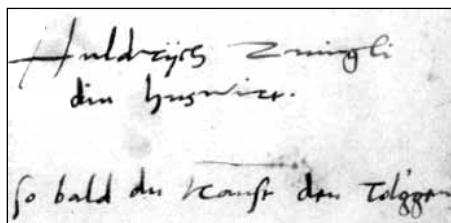 Huldrych Zwingli
din huswirt.
so bald du kanst den Tolggen